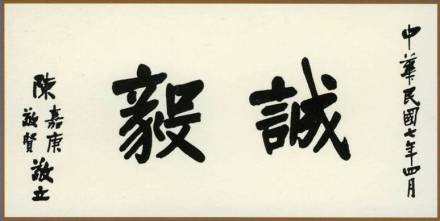 中華民國七年四月
誠毅
陳嘉庚
敬賢 敬立